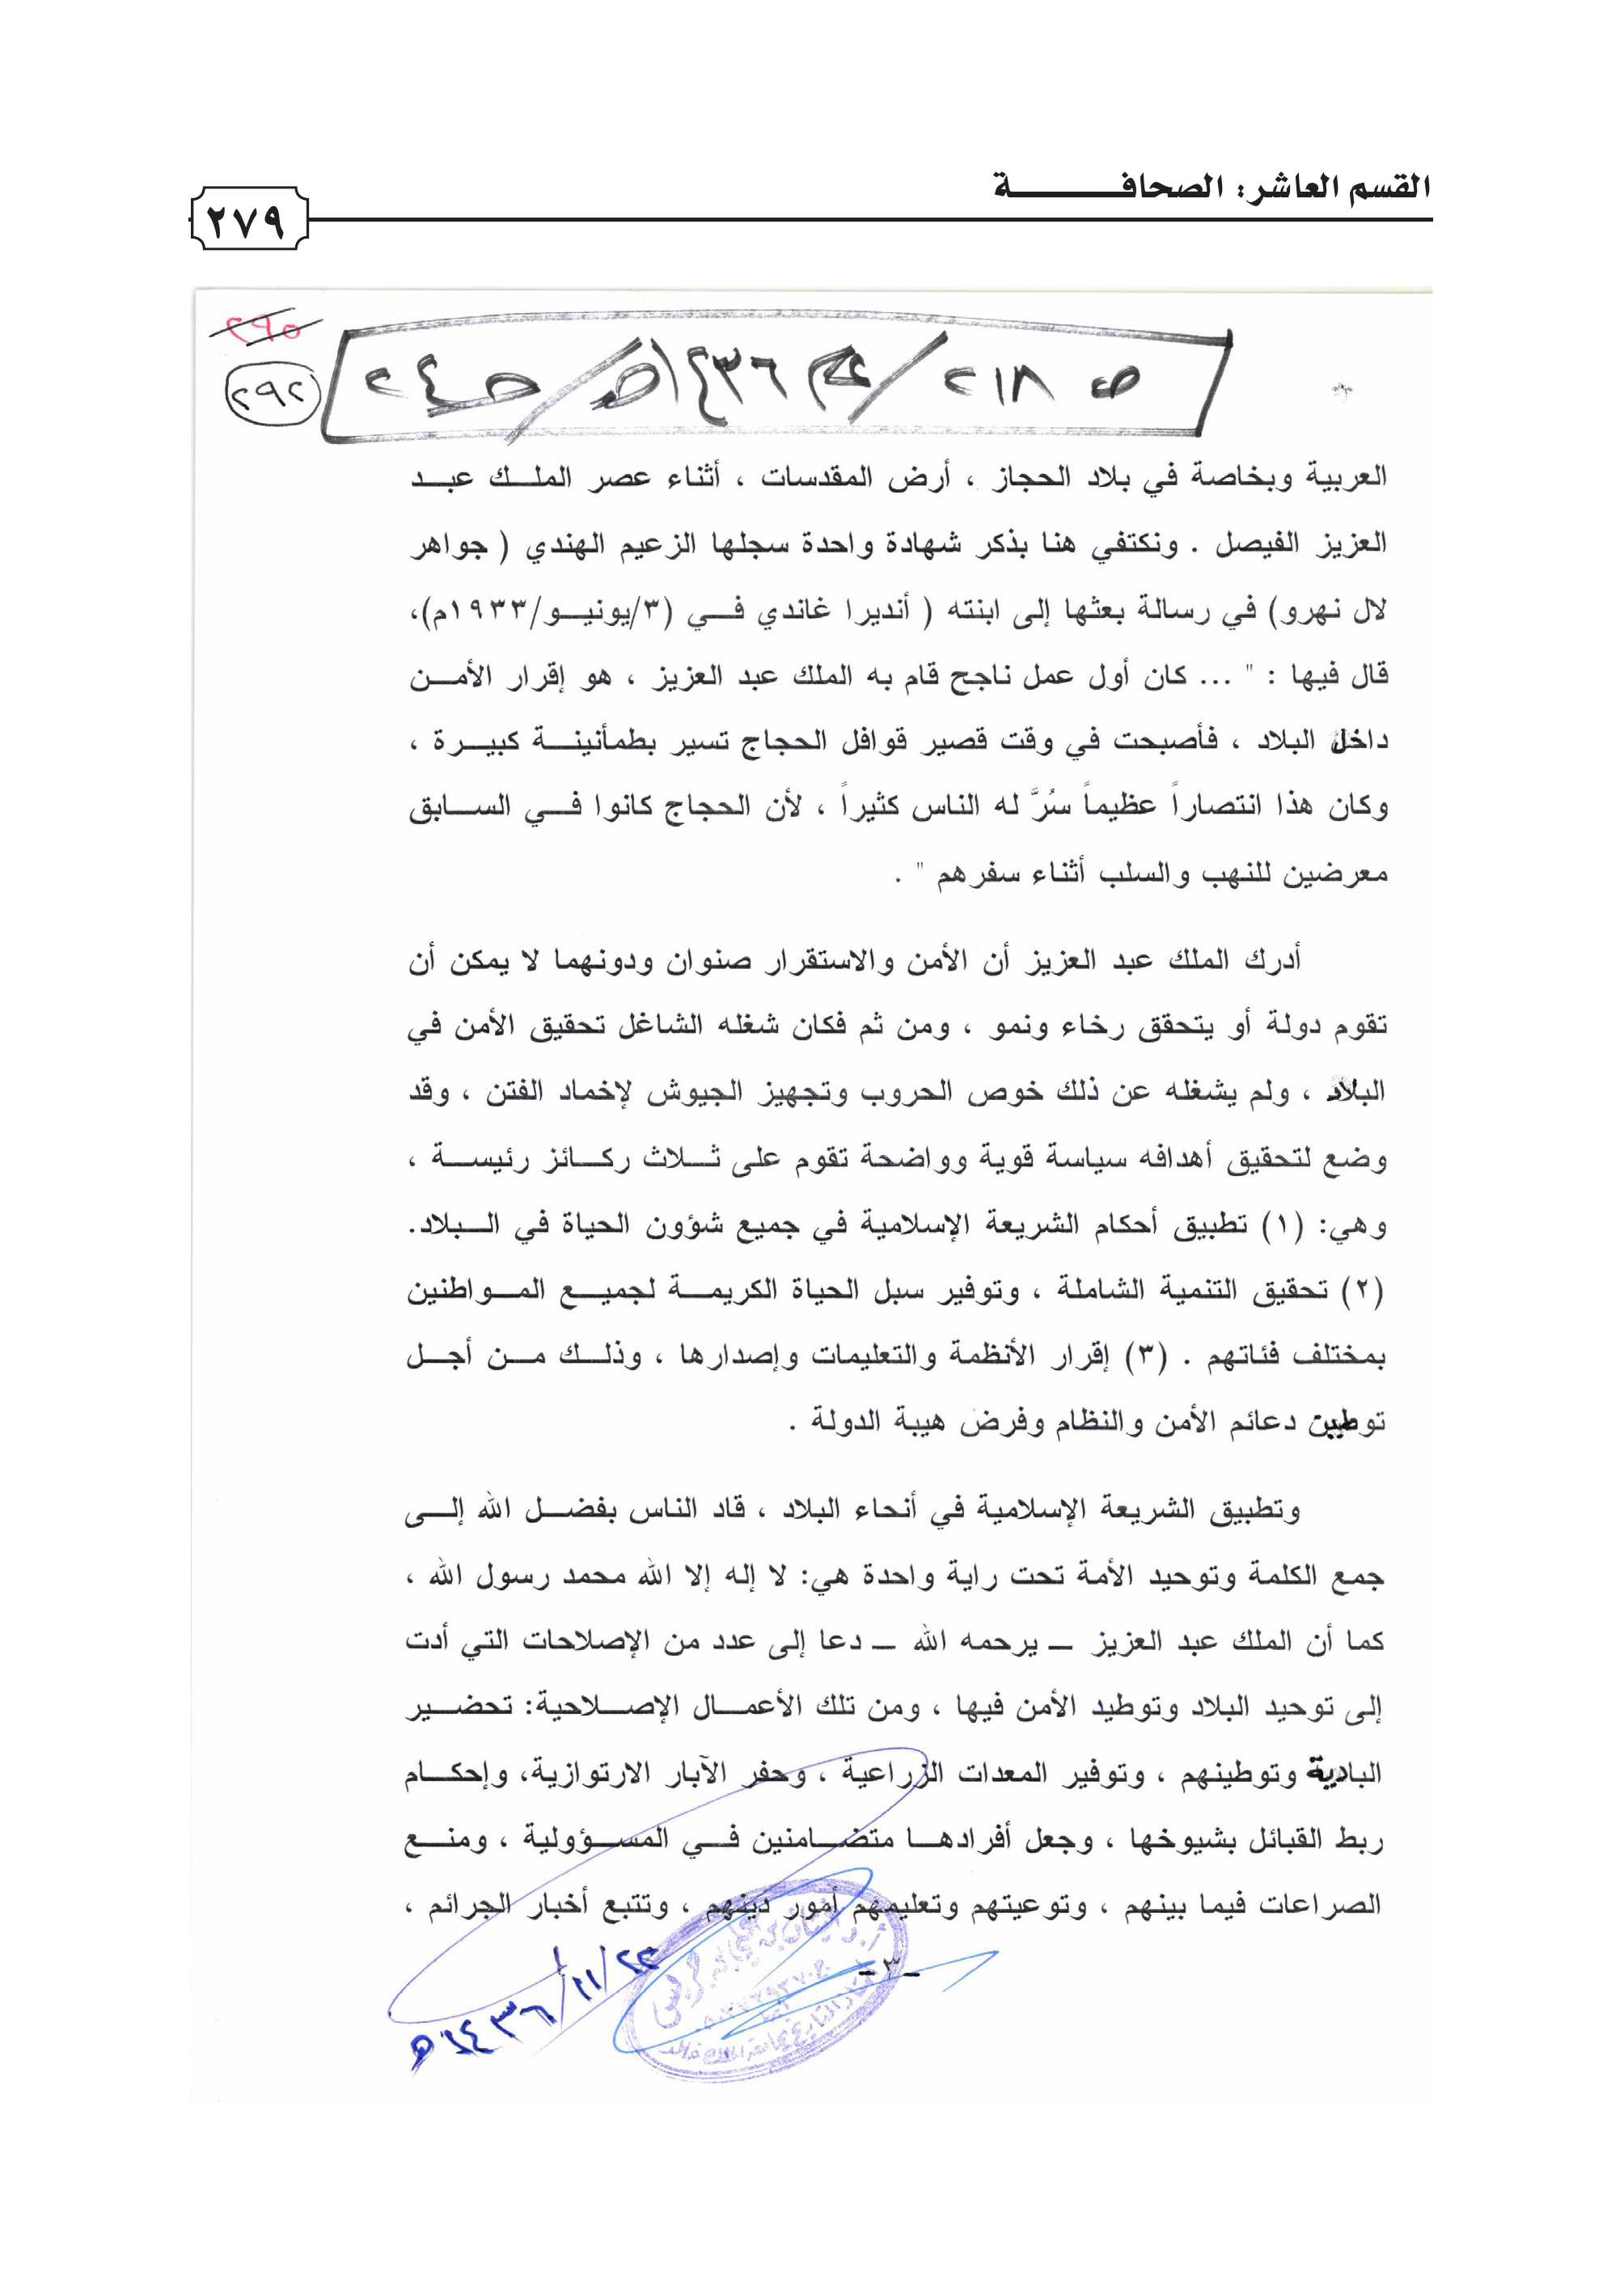 القسم العاشر: الصحافـــــــــــة
٢٧٩
٢٩٥
٢٩٢
ص ٢١٨ / ١٤٣٦هـ / جـ ٢٤
العربية وبخاصة في بلاد الحجاز ، أرض المقدسات ، أثناء عصر الملك عبد
العزيز الفيصل . ونكتفي هنا بذكر شهادة واحدة سجلها الزعيم الهندي ( جواهر
لال نهرو) في رسالة بعثها إلى ابنته ( أنديرا غاندي في (٣/يونيو/١٩٣٣م)،
قال فيها : " ... كان أول عمل ناجح قام به الملك عبد العزيز ، هو إقرار الأمن
داخل البلاد ، فأصبحت في وقت قصير قوافل الحجاج تسير بطمأنينة كبيرة ،
وكان هذا انتصاراً عظيماً سُرَّ له الناس كثيراً ، لأن الحجاج كانوا في السابق
معرضين للنهب والسلب أثناء سفرهم " .
أدرك الملك عبد العزيز أن الأمن والاستقرار صنوان ودونهما لا يمكن أن
تقوم دولة أو يتحقق رخاء ونمو ، ومن ثم فكان شغله الشاغل تحقيق الأمن في
البلاد ، ولم يشغله عن ذلك خوص الحروب وتجهيز الجيوش لإخماد الفتن ، وقد
وضع لتحقيق أهدافه سياسة قوية وواضحة تقوم على ثلاث ركائز رئيسة ،
وهي: (١) تطبيق أحكام الشريعة الإسلامية في جميع شؤون الحياة في البلاد.
(٢) تحقيق التنمية الشاملة ، وتوفير سبل الحياة الكريمة لجميع المواطنين
بمختلف فئاتهم . (٣) إقرار الأنظمة والتعليمات وإصدارها ، وذلك من أجل
توطين دعائم الأمن والنظام وفرض هيبة الدولة .
وتطبيق الشريعة الإسلامية في أنحاء البلاد ، قاد الناس بفضل الله إلى
جمع الكلمة وتوحيد الأمة تحت راية واحدة هي: لا إله إلا الله محمد رسول الله ،
كما أن الملك عبد العزيز ــ يرحمه الله ــ دعا إلى عدد من الإصلاحات التي أدت
إلى توحيد البلاد وتوطيد الأمن فيها ، ومن تلك الأعمال الإصلاحية: تحضير
البادية وتوطينهم ، وتوفير المعدات الزراعية ، وحفر الآبار الارتوازية، وإحكام
ربط القبائل بشيوخها ، وجعل أفرادها متضامنين في المسؤولية ، ومنع
الصراعات فيما بينهم ، وتوعيتهم وتعليمهم أمور دينهم ، وتتبع أخبار الجرائم ،
ــ ٣ ــ
١٤٣٦/١١/٢٢هـ